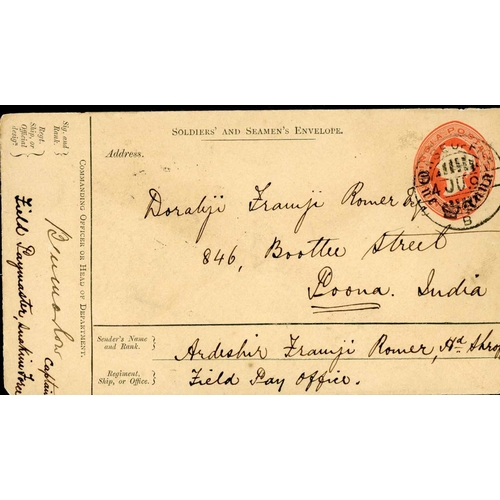 SOLDIERS' AND SEAMEN'S ENVELOPE.
Address.
Dorabji Framji Romer Esq
846, Boottee Street
Poona. India
Sender's Name and Rank.
Ardeshir Framji Romer, Hd Shrof
Regiment, Ship, or Office.
Field Pay Office.
COMMANDING OFFICER OR HEAD OF DEPARTMENT.
Sig. and Rank.
Regt. Ship, or Official desigⁿ
Captain
Field Paymaster, Force